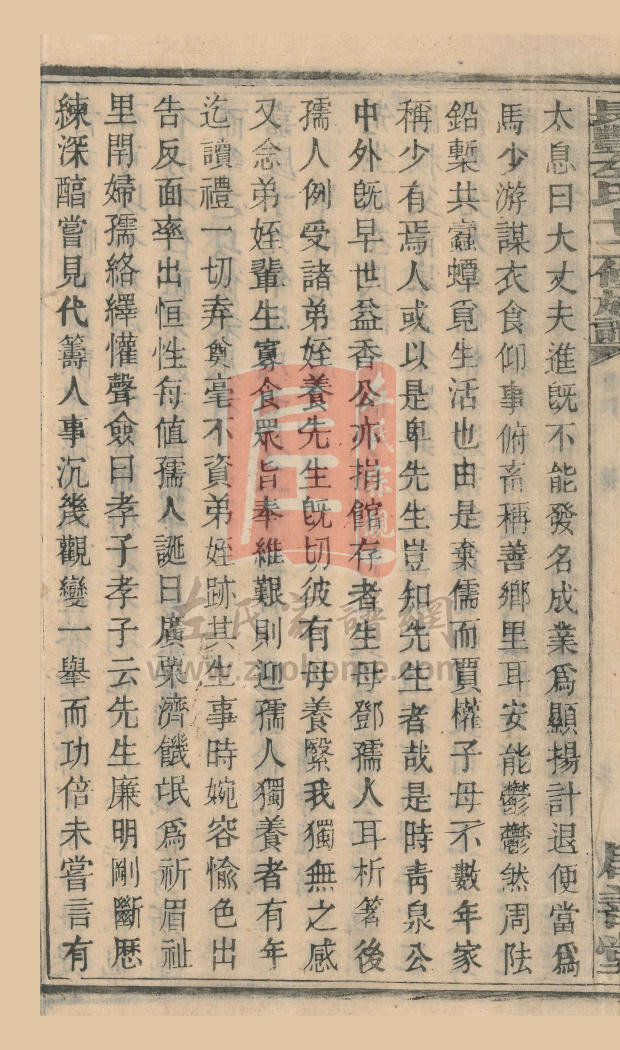 太息曰大丈夫進旣不能發名成業爲顯揚計退便當爲
馬少游謀衣食仰事俯畜稱善鄉里耳安能鬱鬱然周陆
鉛槧共蠧蟫覓生活也由是棄儒而賈權子母不數年家
稱少有焉人或以是卑先生豈知先生者哉是時靑泉公
中外旣早世益香公亦捐館存者生母鄧孺人耳析箸後
孺人例受諸弟姪養先生旣切彼有母養繄我獨無之感
又念弟姪輩生寡食眾旨奉維艱則迎孺人獨養者有年
迄讀禮一切弆奠毫不資弟姪跡其生事時婉容愉色出
告反面率出恒性每値孺人誕日廣粟濟饑氓爲祈眉祉
里閈婦孺絡繹懽聲僉曰孝子孝子云先生廉明剛斷歷
練深醕嘗見代籌人事沉幾觀變一舉而功倍未嘗言有
左氏宗親
左氏家譜網
www.zuohome.com